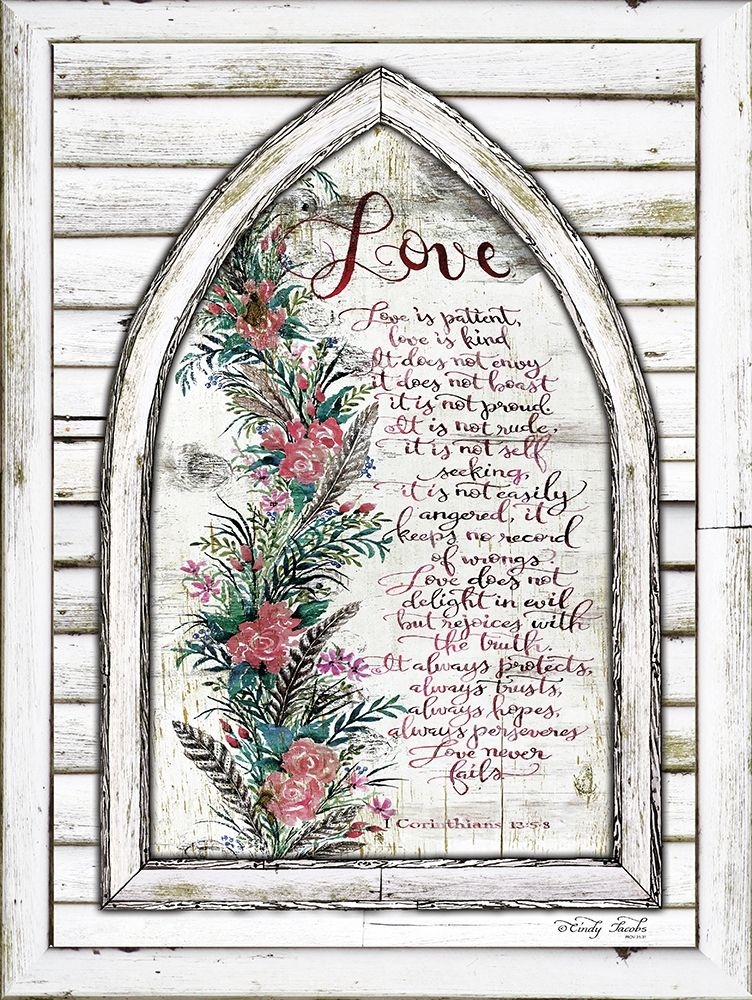 Love
Love is patient,
love is kind
It does not envy
it does not boast
it is not proud.
It is not rude,
it is not self
seeking,
it is not easily
angered, it
keeps no record
of wrongs
Love does not
delight in evil
but rejoices with
the truth.
It always protects,
always trusts,
always hopes,
always perseveres
Love never
fails
1 Corinthians 13:5-8
©Cindy Jacobs
PROV 31:31